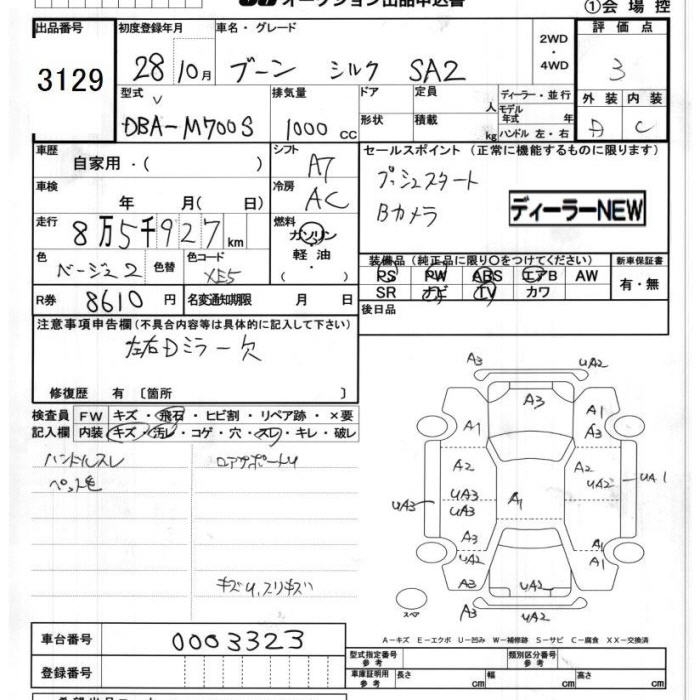 オークション出品申込書
①会場控
出品番号 初度登録年月 車名・グレード 2WD・4WD 評価点
3129 28 10月 ブーン シルク SA2 3
型式 排気量 ドア 定員 人 ディーラー・並行 外装 内装
DBA-M700S 1000 cc 形状 積載 kg モデル年式 年 ハンドル 左・右 D C
車歴 自家用・( ) シフト A7 セールスポイント (正常に機能するものに限ります)
車検 年 月( 日) 冷房 AC プッシュスタート
Bカメラ
ディーラーNEW
走行 8万5千927km 燃料 ガソリン 軽油・( )
色 ベージュ2 色替 色コード XE5 装備品 (純正品に限り○をつけてください) 新車保証書
PS PW ABS エアB AW 有・無
SR ナビ TV カワ
R券 8610円 名変通知期限 月 日 後日品
注意事項申告欄 (不具合内容等は具体的に記入して下さい)
左右Dミラー欠
修復歴 有 〔箇所 〕
検査員記入欄 FW キズ・飛石・ヒビ割・リペア跡・×要
内装 キズ・汚レ・コゲ・穴・スレ・キレ・破レ
ハンドルスレ
キズU,スリキズ
A3 UA2
A3 A1
A1 A3
A2 A2
UA3 UA2 UA1
UA3 UA3 A1
A3 A1
UA2 A1
A3 UA2 UA2
スペア A3 UA2
A-キズ E-エクボ U-凹み W-補修跡 S-サビ C-腐食 XX-交換済
車台番号 0003323
登録番号
型式指定番号 参考 類別区分番号 参考
車庫証明用 参考 長さ cm 幅 cm 高さ cm